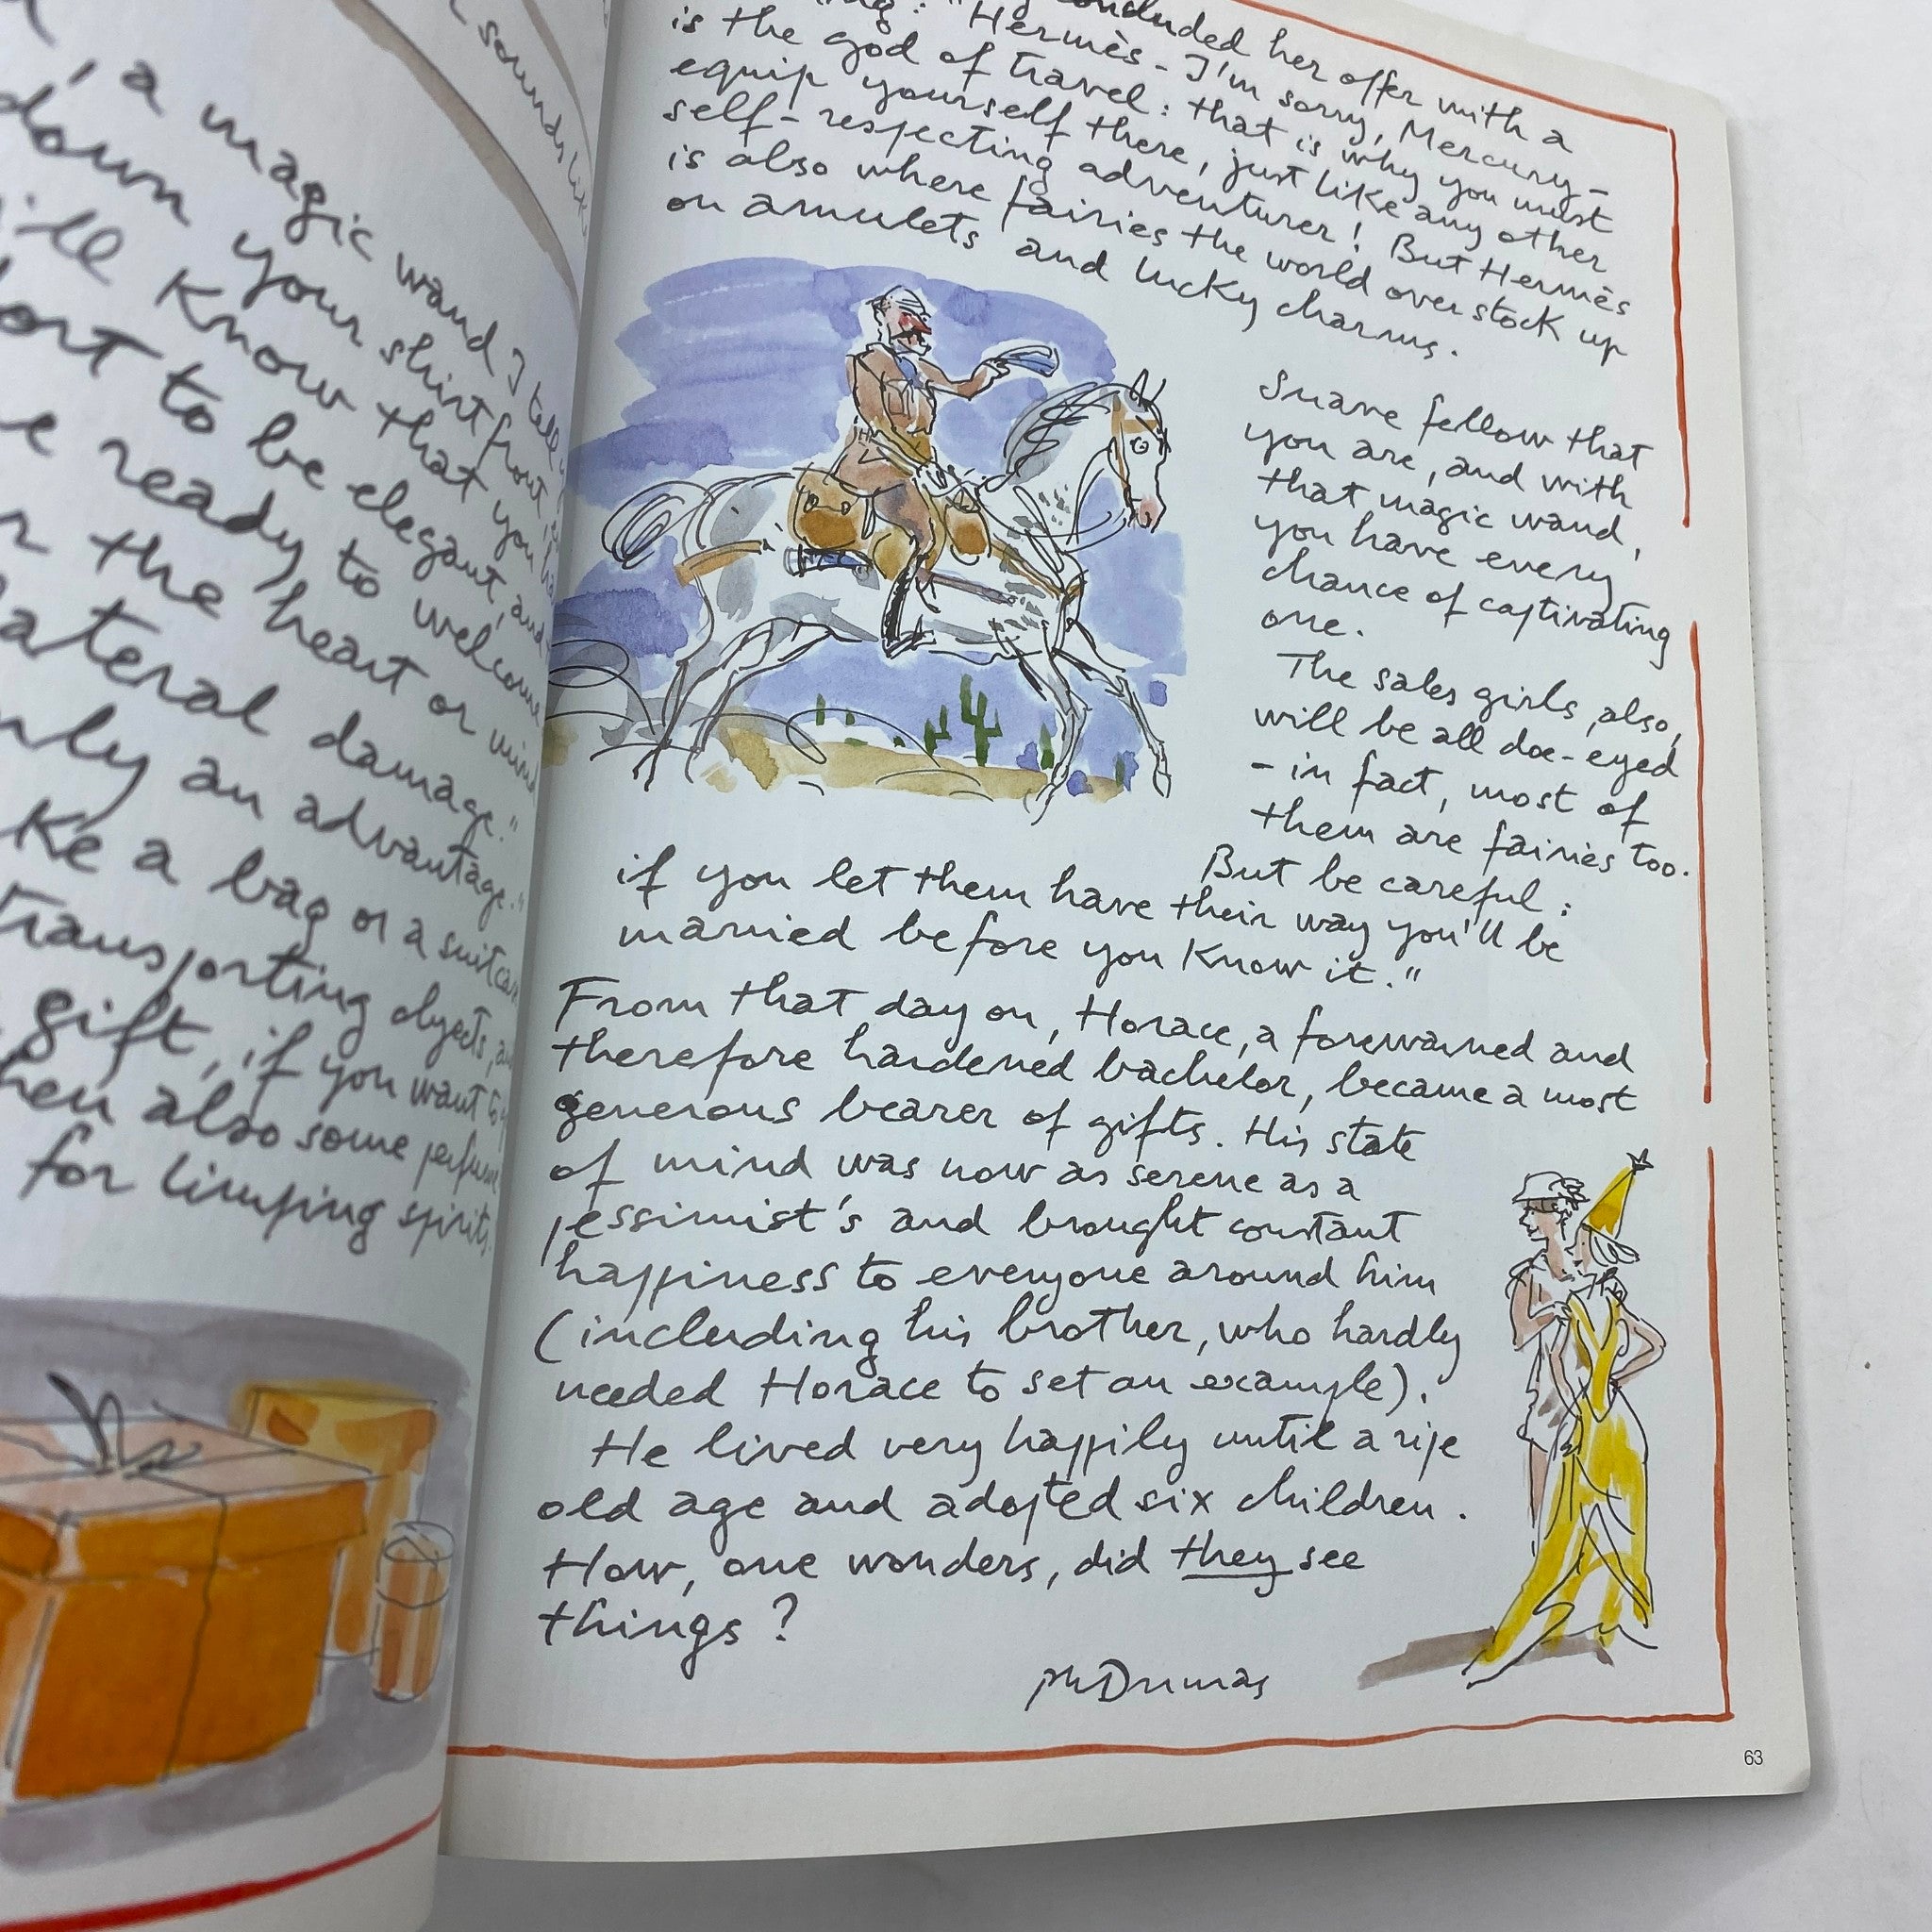 sounds like
a magic wand I tell
down your shirtfront,
know that you
to be elegant, and
ready to welcome
the heart or mind
damage."
an advantage."
a bag or a suitcase
transporting objects,
gift, if you want to
also some perfume
for limping spirits.
concluded her offer with a
"Hermès - I'm sorry, Mercury -
is the god of travel: that is why you must
equip yourself there, just like any other
self-respecting adventurer! But Hermès
is also where fairies the world over stock up
on amulets and lucky charms.
Suave fellow that
you are, and with
that magic wand,
you have every
chance of captivating
one.
The sales girls, also,
will be all doe-eyed
- in fact, most of
them are fairies too.
But be careful:
if you let them have their way you'll be
married before you know it."
From that day on, Horace, a forewarned and
therefore hardened bachelor, became a most
generous bearer of gifts. His state
of mind was now as serene as a
pessimist's and brought constant
happiness to everyone around him
(including his brother, who hardly
needed Horace to set an example).
He lived very happily until a ripe
old age and adopted six children.
How, one wonders, did they see
things?
Ph Dumas
63